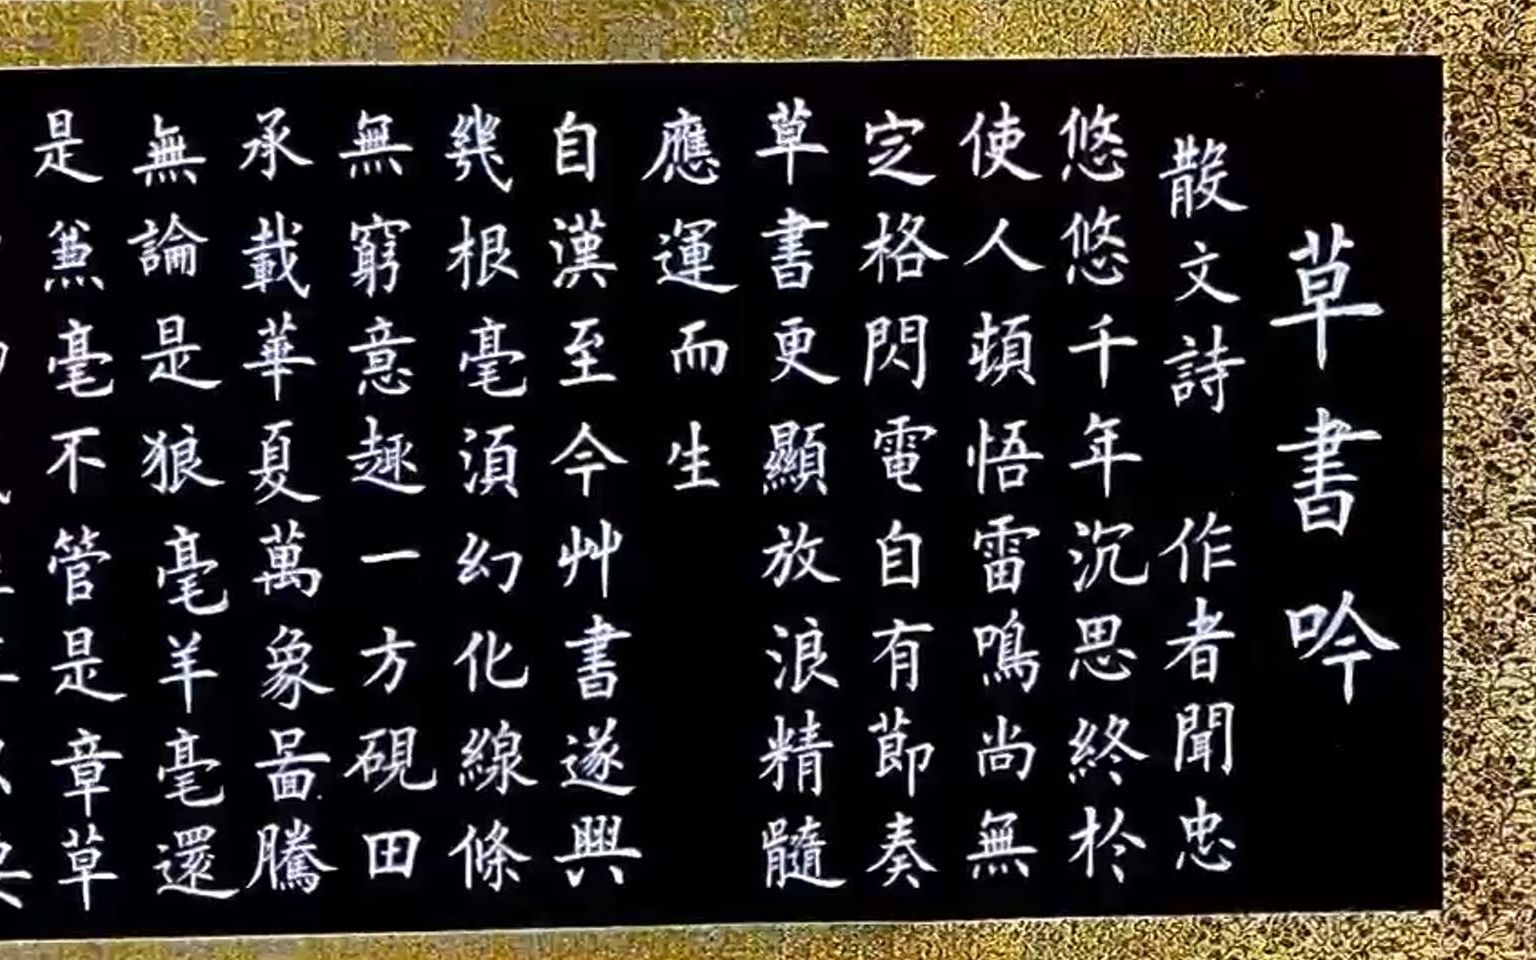 草書吟
散文詩 作者聞忠
悠悠千年沉思終於
使人頓悟雷鳴尚無
定格閃電自有節奏
草書更顯放浪精髓
應運而生
自漢至今艸書遂興
幾根毫須幻化線條
無窮意趣一方硯田
承載華夏萬象啚騰
無論是狼毫羊毫還
是兼毫不管是章草